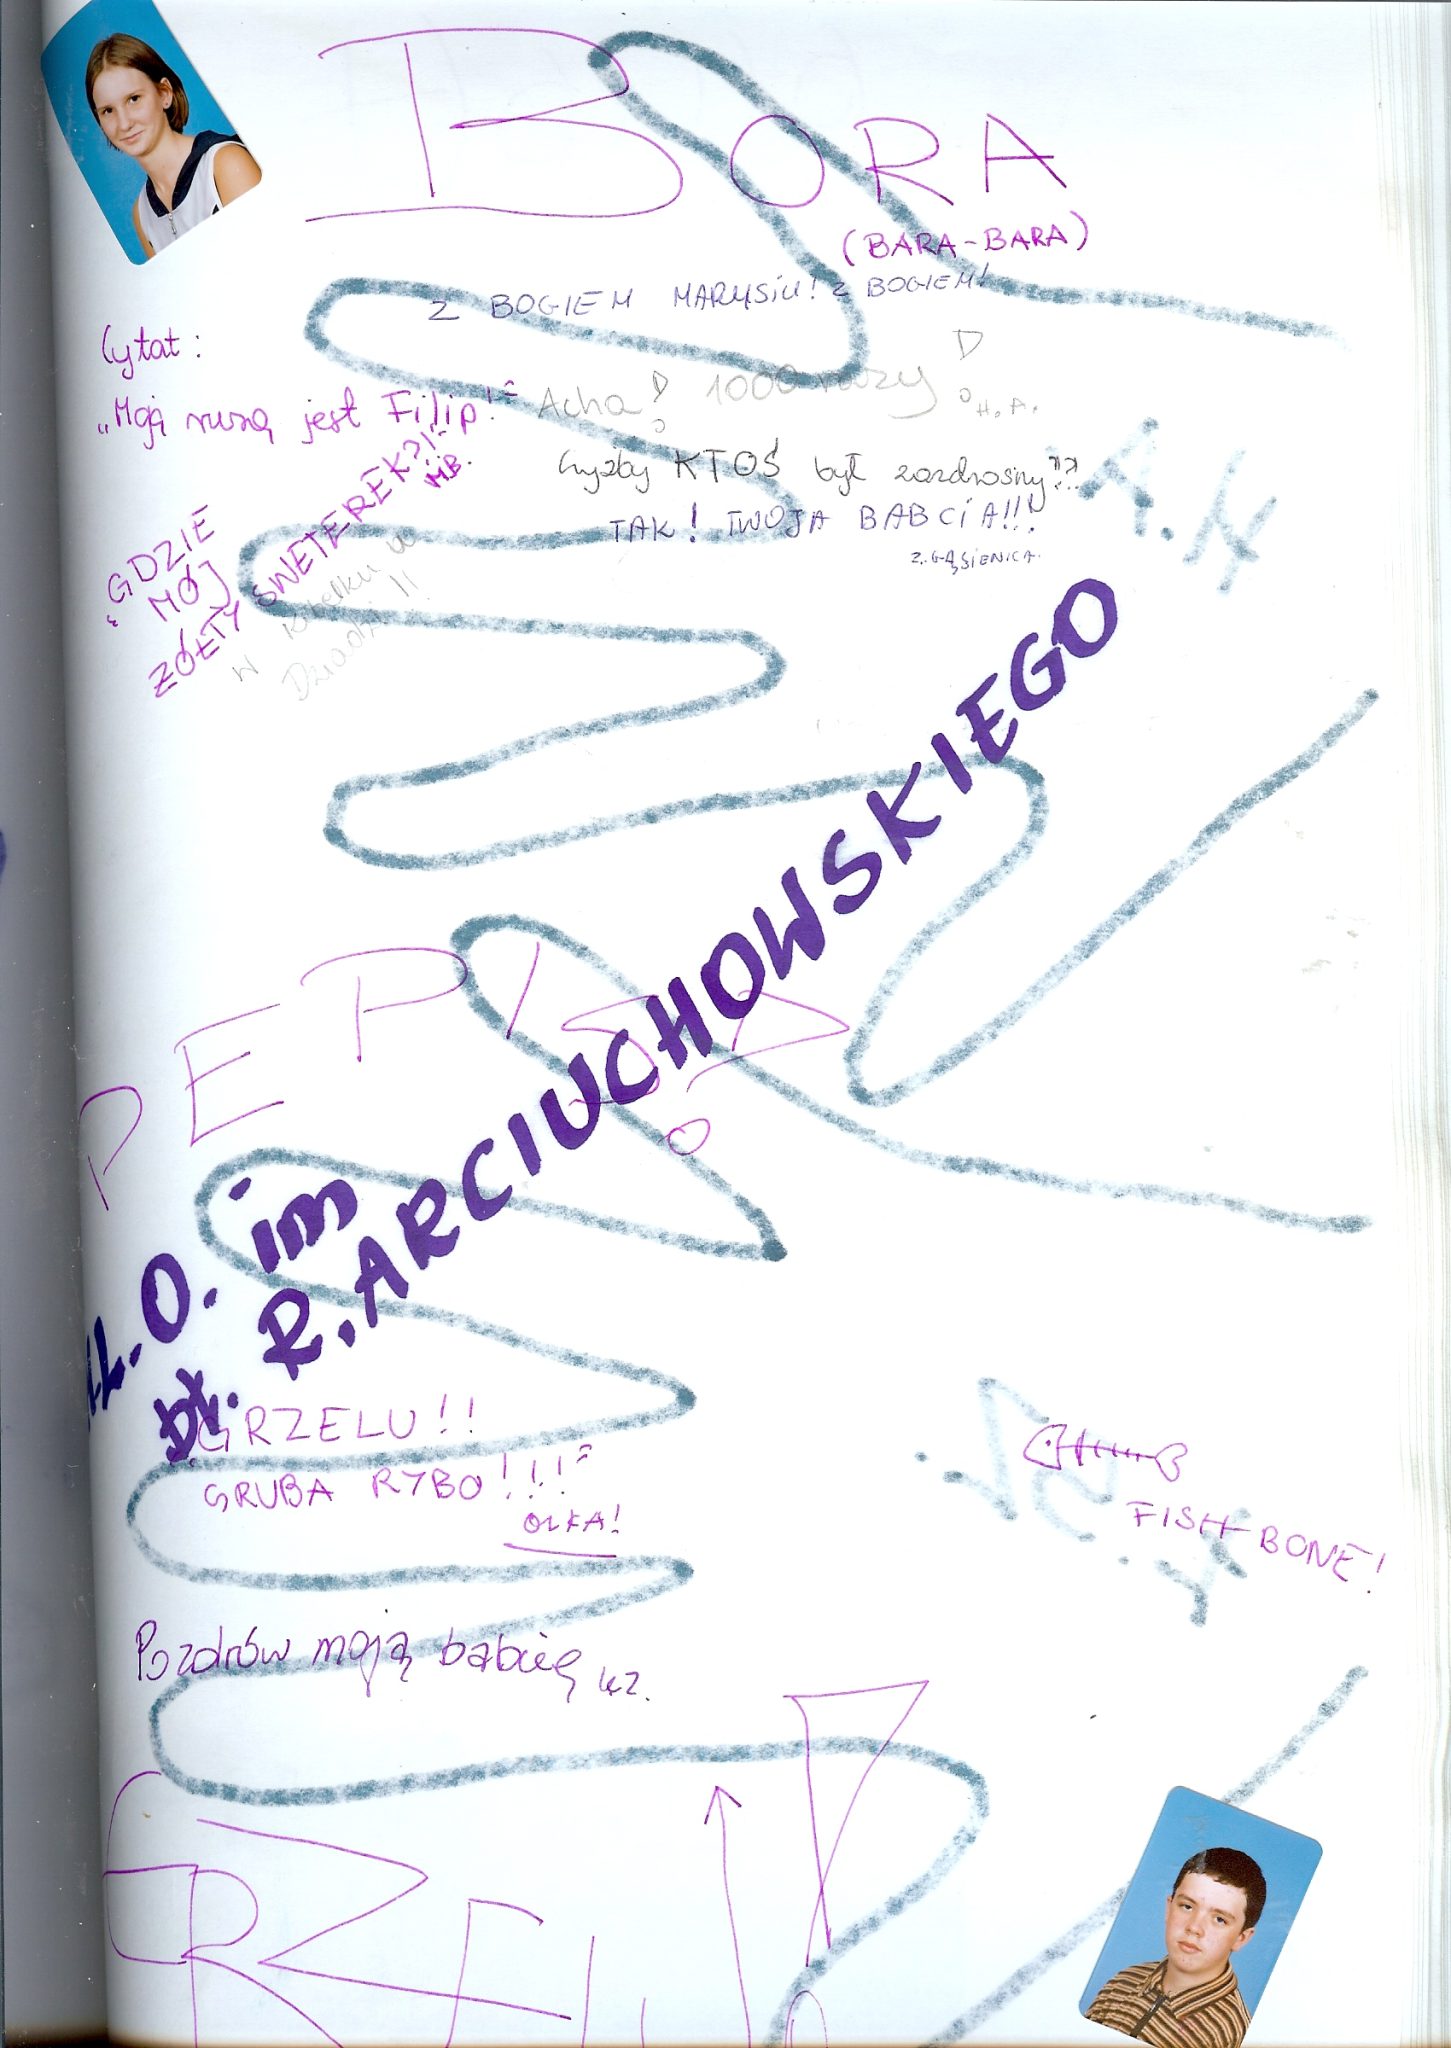 BORA
(BARA-BARA)
Z BOGIEM MARYSIU! Z BOGIEM!
Cytat:
„Moją muzą jest Filip!"
Acha! 1000 razy!
H.A.
Czyżby KTOŚ był zazdrosny?!?
TAK! TWOJA BABCIA!!!
Z. GĄSIENICA.
„GDZIE
MÓJ
ŻÓŁTY SWETEREK?!"
MB.
w
Dziadzi!!
A.H
PEPISZ?
L.O. im
bł. R. ARCIUCHOWSKIEGO
GRZELU!!
GRUBA RYBO!!!"
OLKA!
FISH BONE!
Pozdrów moją babcię
GRZELU!